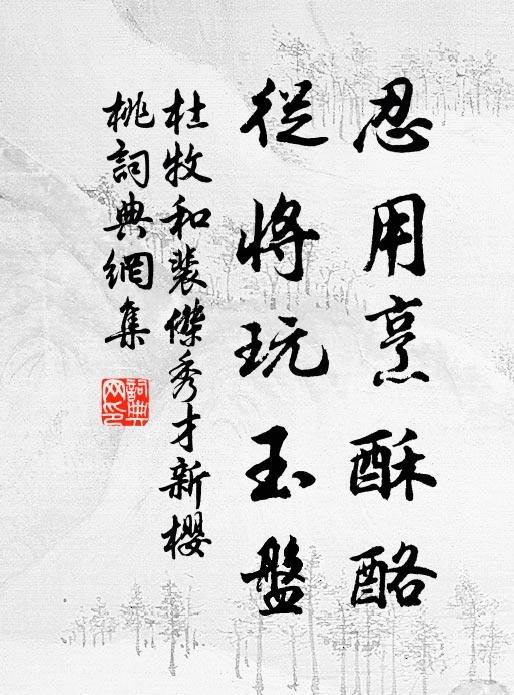 忍用烹酥酪
從將玩玉盤
杜牧和裴傑秀才新櫻
桃詞典網集
詞典網印